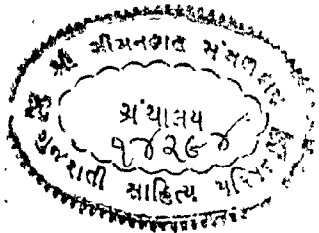 શ્રી ચીમનલાલ મંગળદાસ
ગ્રંથાલય
૧૪૨૯૪
ગુજરાતી સાહિત્ય પરિષદ